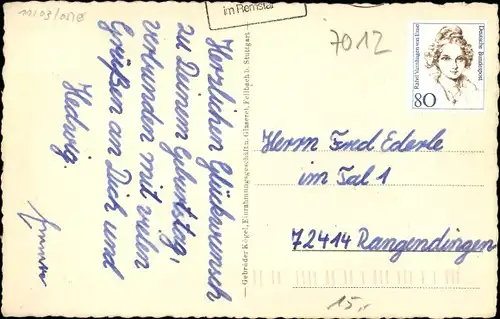 11103/0518
im Remstal
7012
Deutsche Bundespost
Rahel Varnhagen von Ense
80
Herzlichen Glückwunsch
zu Deinem Geburtstag,
verbunden mit vielen
Grüßen an Dich und
Hedwig.
— Gebrüder Kögel, Einrahmungsgeschäft u. Glaserei, Fellbach b. Stuttgart —
Herrn Fred Ederle
im Tal 1
72414 Rangendingen
15,-